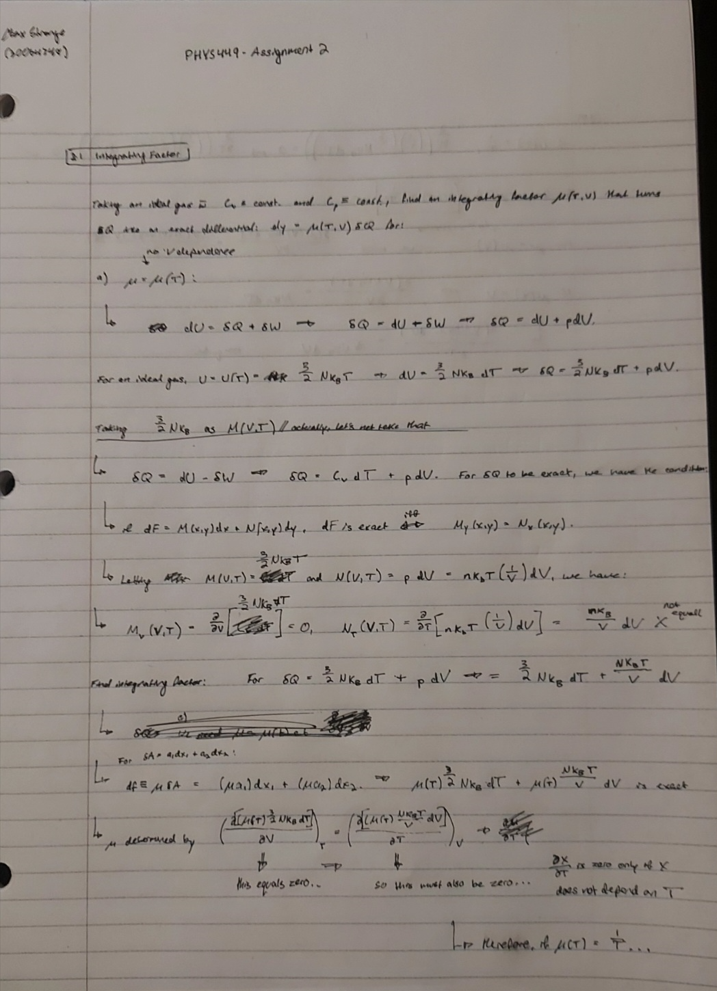 PHYS449 - Assignment 2
2.1 Integrating Factor
Taking an ideal gas w/ Cv = const. and Cp = const, find an integrating factor μ(T,V) that turns
δQ into an exact differential: dy = μ(T,V) δQ for:
no V dependence
a) μ = μ(T):
dU = δQ + δW → δQ = dU + δW → δQ = dU + pdV.
For an ideal gas, U = U(T) = 3/2 NkBT → dU = 3/2 NkB dT → δQ = 3/2 NkB dT + pdV.
Taking 3/2 NkB as M(V,T) // actually, let's not take that
δQ = dU - δW → δQ = Cv dT + pdV. For δQ to be exact, we have the condition:
dF = M(x,y)dx + N(x,y)dy, dF is exact iff My(x,y) = Nx(x,y).
Letting M(V,T) = 3/2 NkBT and N(V,T) = p dV = nkbT (1/V) dV, we have:
Mv(V,T) = ∂/∂V [3/2 NkB dT] = 0, NT(V,T) = ∂/∂T [nkbT (1/V) dV] = nkB/V dV X not equal
Find integrating factor: For δQ = 3/2 NkB dT + p dV → = 3/2 NkB dT + NkBT/V dV
For δA = a1dx1 + a2dx2:
df ≡ μδA = (μa1)dx1 + (μa2)dx2. → μ(T) 3/2 NkB dT + μ(T) NkBT/V dV is exact
μ determined by (∂[μ(T) 3/2 NkB dT]/∂V)T = (∂[μ(T) NkBT/V dV]/∂T)V →
this equals zero.. → so this must also be zero... ∂X/∂T is zero only if X
does not depend on T
therefore, if μ(T) = 1/T ...